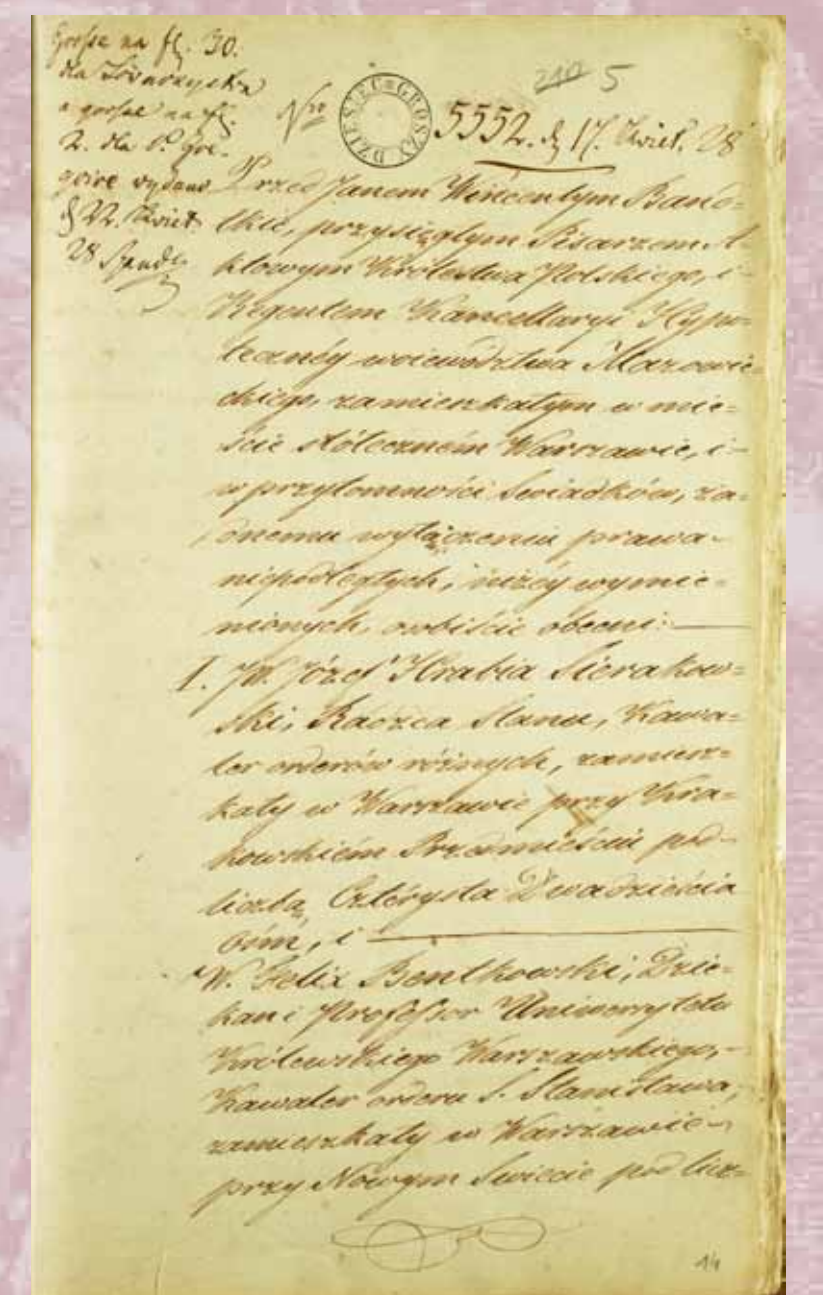 Grosse na fl. 30.
dla Towarzystwa
a grosse na fl.
2. dla P. Gre-
goire wydano
d. 22. Kwiet
28
210 5
DZIESIĘĆ GROSZY
Nro 5552. d. 17. Kwiet. 28
Przed Janem Wincentym Band-
tkie, przysięgłym Pisarzem A-
ktowym Królestwa Polskiego, i
Regentem Kancellaryi Hypo-
tecznéy województwa Mazowie-
ckiego, zamieszkałym w mie-
ście stółeczném Warszawie, i
w przytomności świadków, ża-
dnemu wyłączeniu prawa
niepodległych, niżéy wymie-
nionych, osobiście obecni:
I. JW. Józef Hrabia Sierakow-
ski, Radzca Stanu, Kawa-
ler orderów różnych, zamiesz-
kały w Warszawie przy Kra-
kowskiém Przedmieściu pod
liczbą Czterysta Dwadzieścia
Ośm, i
W. Felix Bentkowski, Dzie-
kan i Professor Uniwersytetu
Królewskiego Warszawskiego,
Kawaler orderu S. Stanisława,
zamieszkały w Warszawie
przy Nowym Świecie pod licz-
14